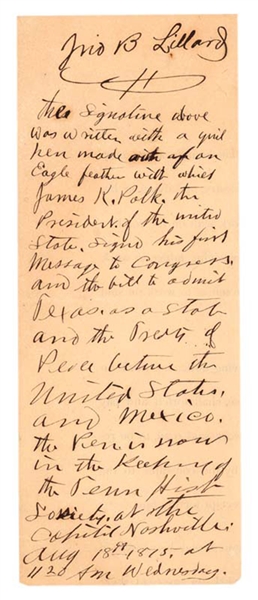 Jno B Lillard
the Signature above
was written with a quil
pen made of an
Eagle feather with which
James K. Polk. the
President of the united
State. Signd his first
Message to Congress.
and the bill to admit
Texas as a State
and the Treaty of
Peace between the
United States.
and Mexico.
the Pen is now
in the Keeping of
the Tenn Hist
Society. at the
Capitol Nashville.
Aug 18th 1815. at
1120 Am Wednesday.